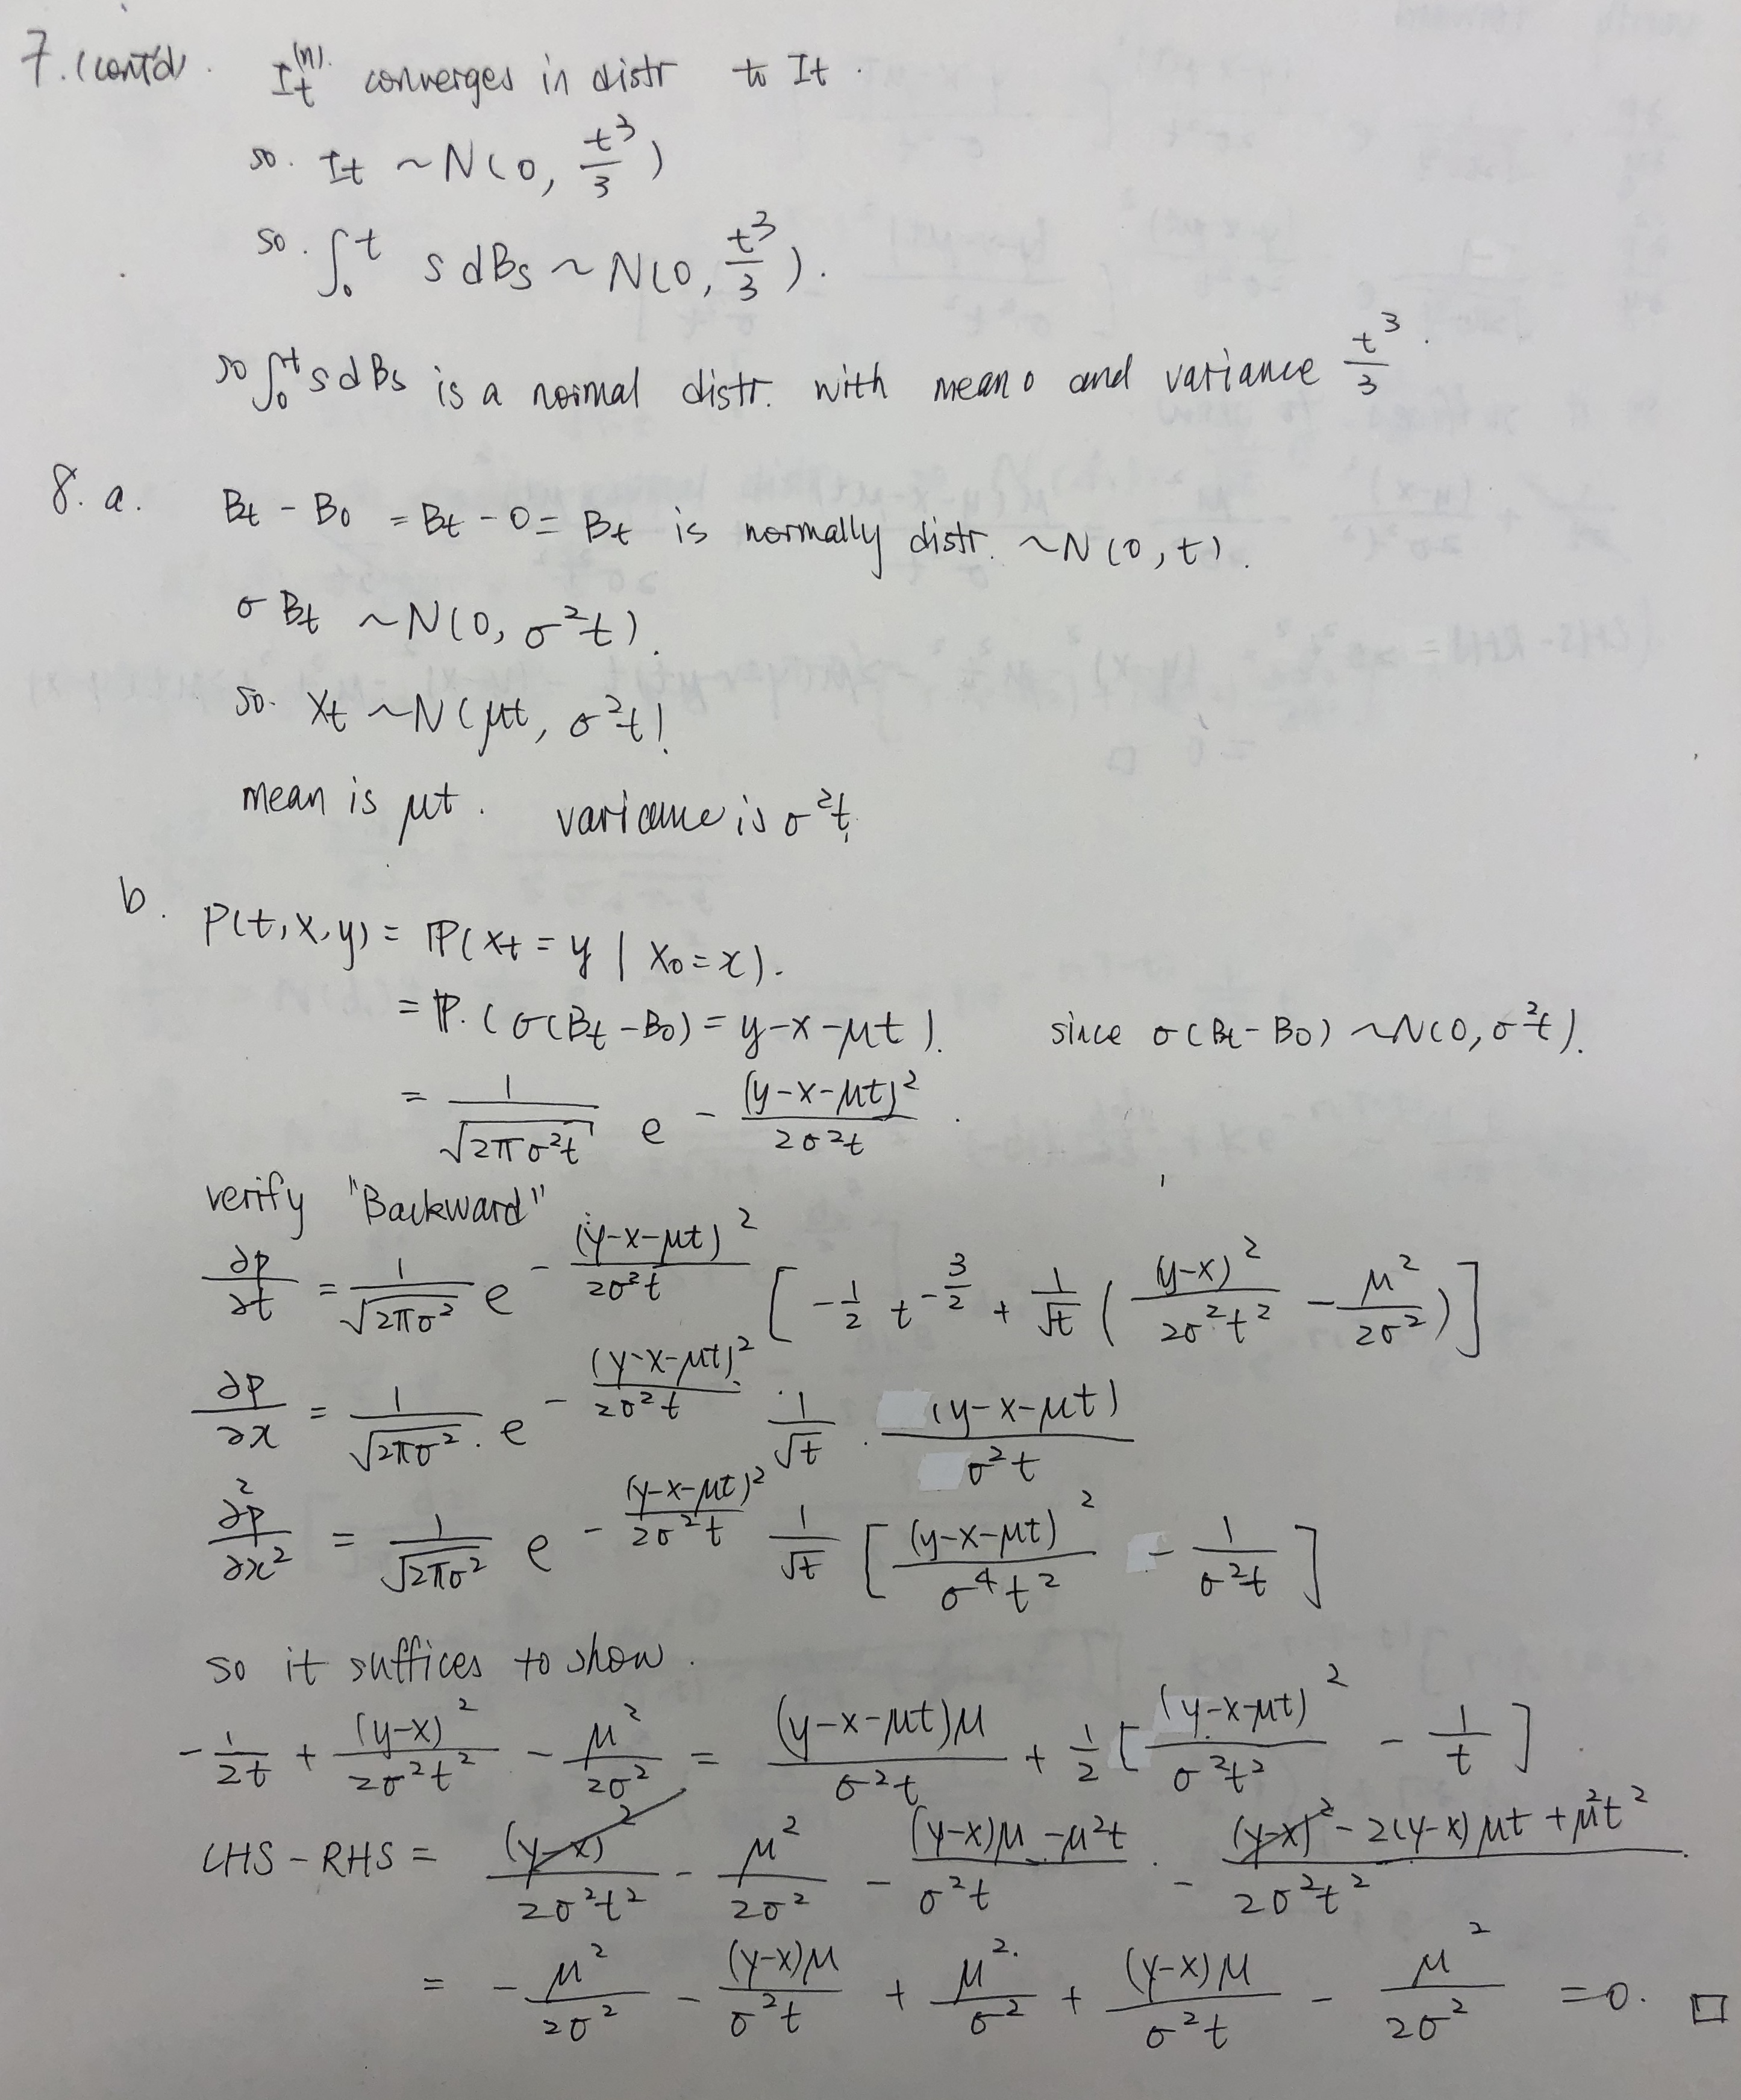 7. (cont'd). I_t^{(n)}. converges in distr to It.
so. It ~ N(0, t³/3)
so. ∫₀ᵗ s dBs ~ N(0, t³/3).
so ∫₀ᵗ s dBs is a normal distr. with mean 0 and variance t³/3.
8. a. Bt - B0 = Bt - 0 = Bt is normally distr. ~N(0, t).
σBt ~ N(0, σ²t).
so. Xt ~ N(μt, σ²t).
mean is μt. variance is σ²t.
b. P(t, x, y) = ℙ(Xt = y | X0 = x).
= ℙ.(σ(Bt - B0) = y-x-μt). since σ(Bt - B0) ~ N(0, σ²t).
= 1/√(2πσ²t) e^{-(y-x-μt)²/(2σ²t)}.
verify "Backward"
∂p/∂t = 1/√(2πσ²) e^{-(y-x-μt)²/(2σ²t)} [-1/2 t^{-3/2} + 1/√t ((y-x)²/(2σ²t²) - μ²/(2σ²))]
∂p/∂x = 1/√(2πσ²). e^{-(y-x-μt)²/(2σ²t)} 1/√t . (y-x-μt)/(σ²t)
∂²p/∂x² = 1/√(2πσ²) e^{-(y-x-μt)²/(2σ²t)} 1/√t [(y-x-μt)²/(σ⁴t²) - 1/(σ²t)]
so it suffices to show.
-1/(2t) + (y-x)²/(2σ²t²) - μ²/(2σ²) = (y-x-μt)μ/(σ²t) + 1/2 [(y-x-μt)²/(σ²t²) - 1/t].
LHS - RHS = (y-x)²/(2σ²t²) - μ²/(2σ²) - ((y-x)μ - μ²t)/(σ²t) - ((y-x)² - 2(y-x)μt + μ²t²)/(2σ²t²).
= -μ²/(2σ²) - (y-x)μ/(σ²t) + μ²/σ² + (y-x)μ/(σ²t) - μ²/(2σ²) = 0. □